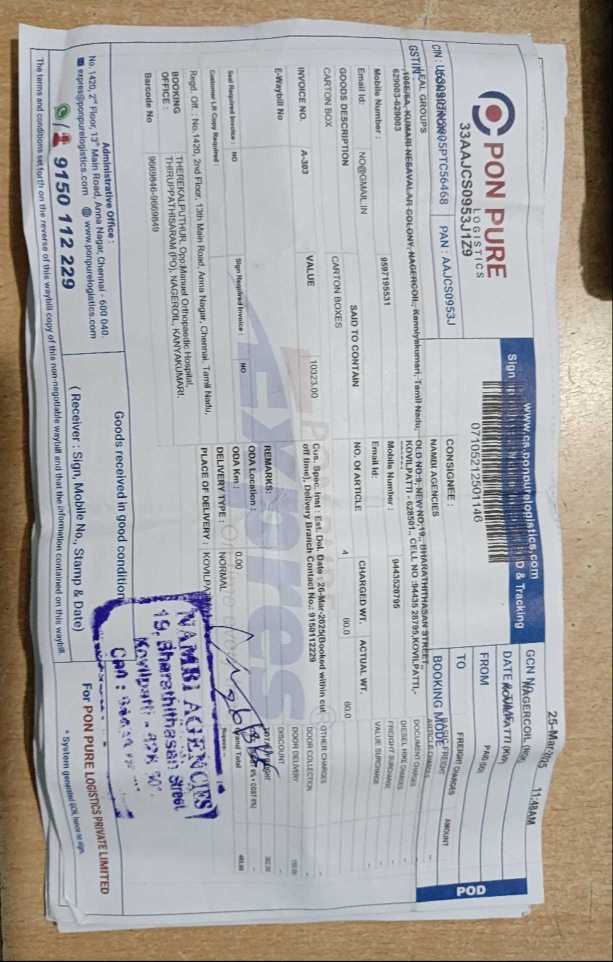 PON PURE
LOGISTICS
33AAJCS0953J1Z9
PAN : AAJCS0953J
GSTIN
www.cs.ponpurelogistics.com
& Tracking
07105212501146
25-Mar-2025 11:48AM
GCN No.
NAGERCOIL
DATE & TIME
KOVILPATTI
FROM
TO
PAID
BOOKING MODE
POD
LEAL GROUPS
1066/6A, KUMARI NESAVALAR COLONY, NAGERCOIL, Kanniyakumari, Tamil Nadu,
629003-629003
Mobile Number :
9597195531
Email Id:
NO@GMAIL.IN
CONSIGNEE :
NAMBI AGENCIES
OLD NO:9, NEW NO:19,, BHARATHITHASAN STREET,,
KOVILPATTI - 628501., CELL NO :94435 28795,KOVILPATTI,-
Mobile Number :
9443528795
Email Id:
FREIGHT CHARGES
AMOUNT
DOCUMENT CHARGES
FREIGHT SURCHARGE
VALUE SURCHARGE
OTHER CHARGES
DOOR COLLECTION
DOOR DELIVERY
DISCOUNT
GOODS DESCRIPTION
SAID TO CONTAIN
NO. OF ARTICLE
CHARGED WT.
ACTUAL WT.
CARTON BOX
CARTON BOXES
4
60.0
60.0
INVOICE NO.
A-303
VALUE
10323.00
E-Waybill No
Cus. Spec. Inst : Est. Del. Date : 26-Mar-2025(Booked within cut
off time), Delivery Branch Contact No.: 9150112229
REMARKS:
Seal Required Invoice :
NO
Sign Required Invoice :
NO
ODA Location :
Customer LR Copy Required :
ODA Km :
0.00
Regd. Off. : No.1420, 2nd Floor, 13th Main Road, Anna Nagar, Chennai, Tamil Nadu,
DELIVERY TYPE :
NORMAL
BOOKING
OFFICE :
THEREKALPUTHUR, Opp.Manuel Orthopaedic Hospital,
THIRUPPATHISARAM (PO), NAGERCOIL, KANYAKUMARI,
PLACE OF DELIVERY :
Barcode No
9669846-9669849
Administrative Office :
No. 1420, 2nd Floor, 13th Main Road, Anna Nagar, Chennai - 600 040.
expres@ponpurelogistics.com www.ponpurelogistics.com
9150 112 229
Goods received in good condition
( Receiver : Sign, Mobile No., Stamp & Date)
NAMBI AGENCIES
19, Bharathithasan Street
Kovilpatti -
For PON PURE LOGISTICS PRIVATE LIMITED
* System generated GCN, hence no sign.
The terms and conditions set forth on the reverse of this waybill copy of this non-negotiable waybill and that the information contained on this waybill.